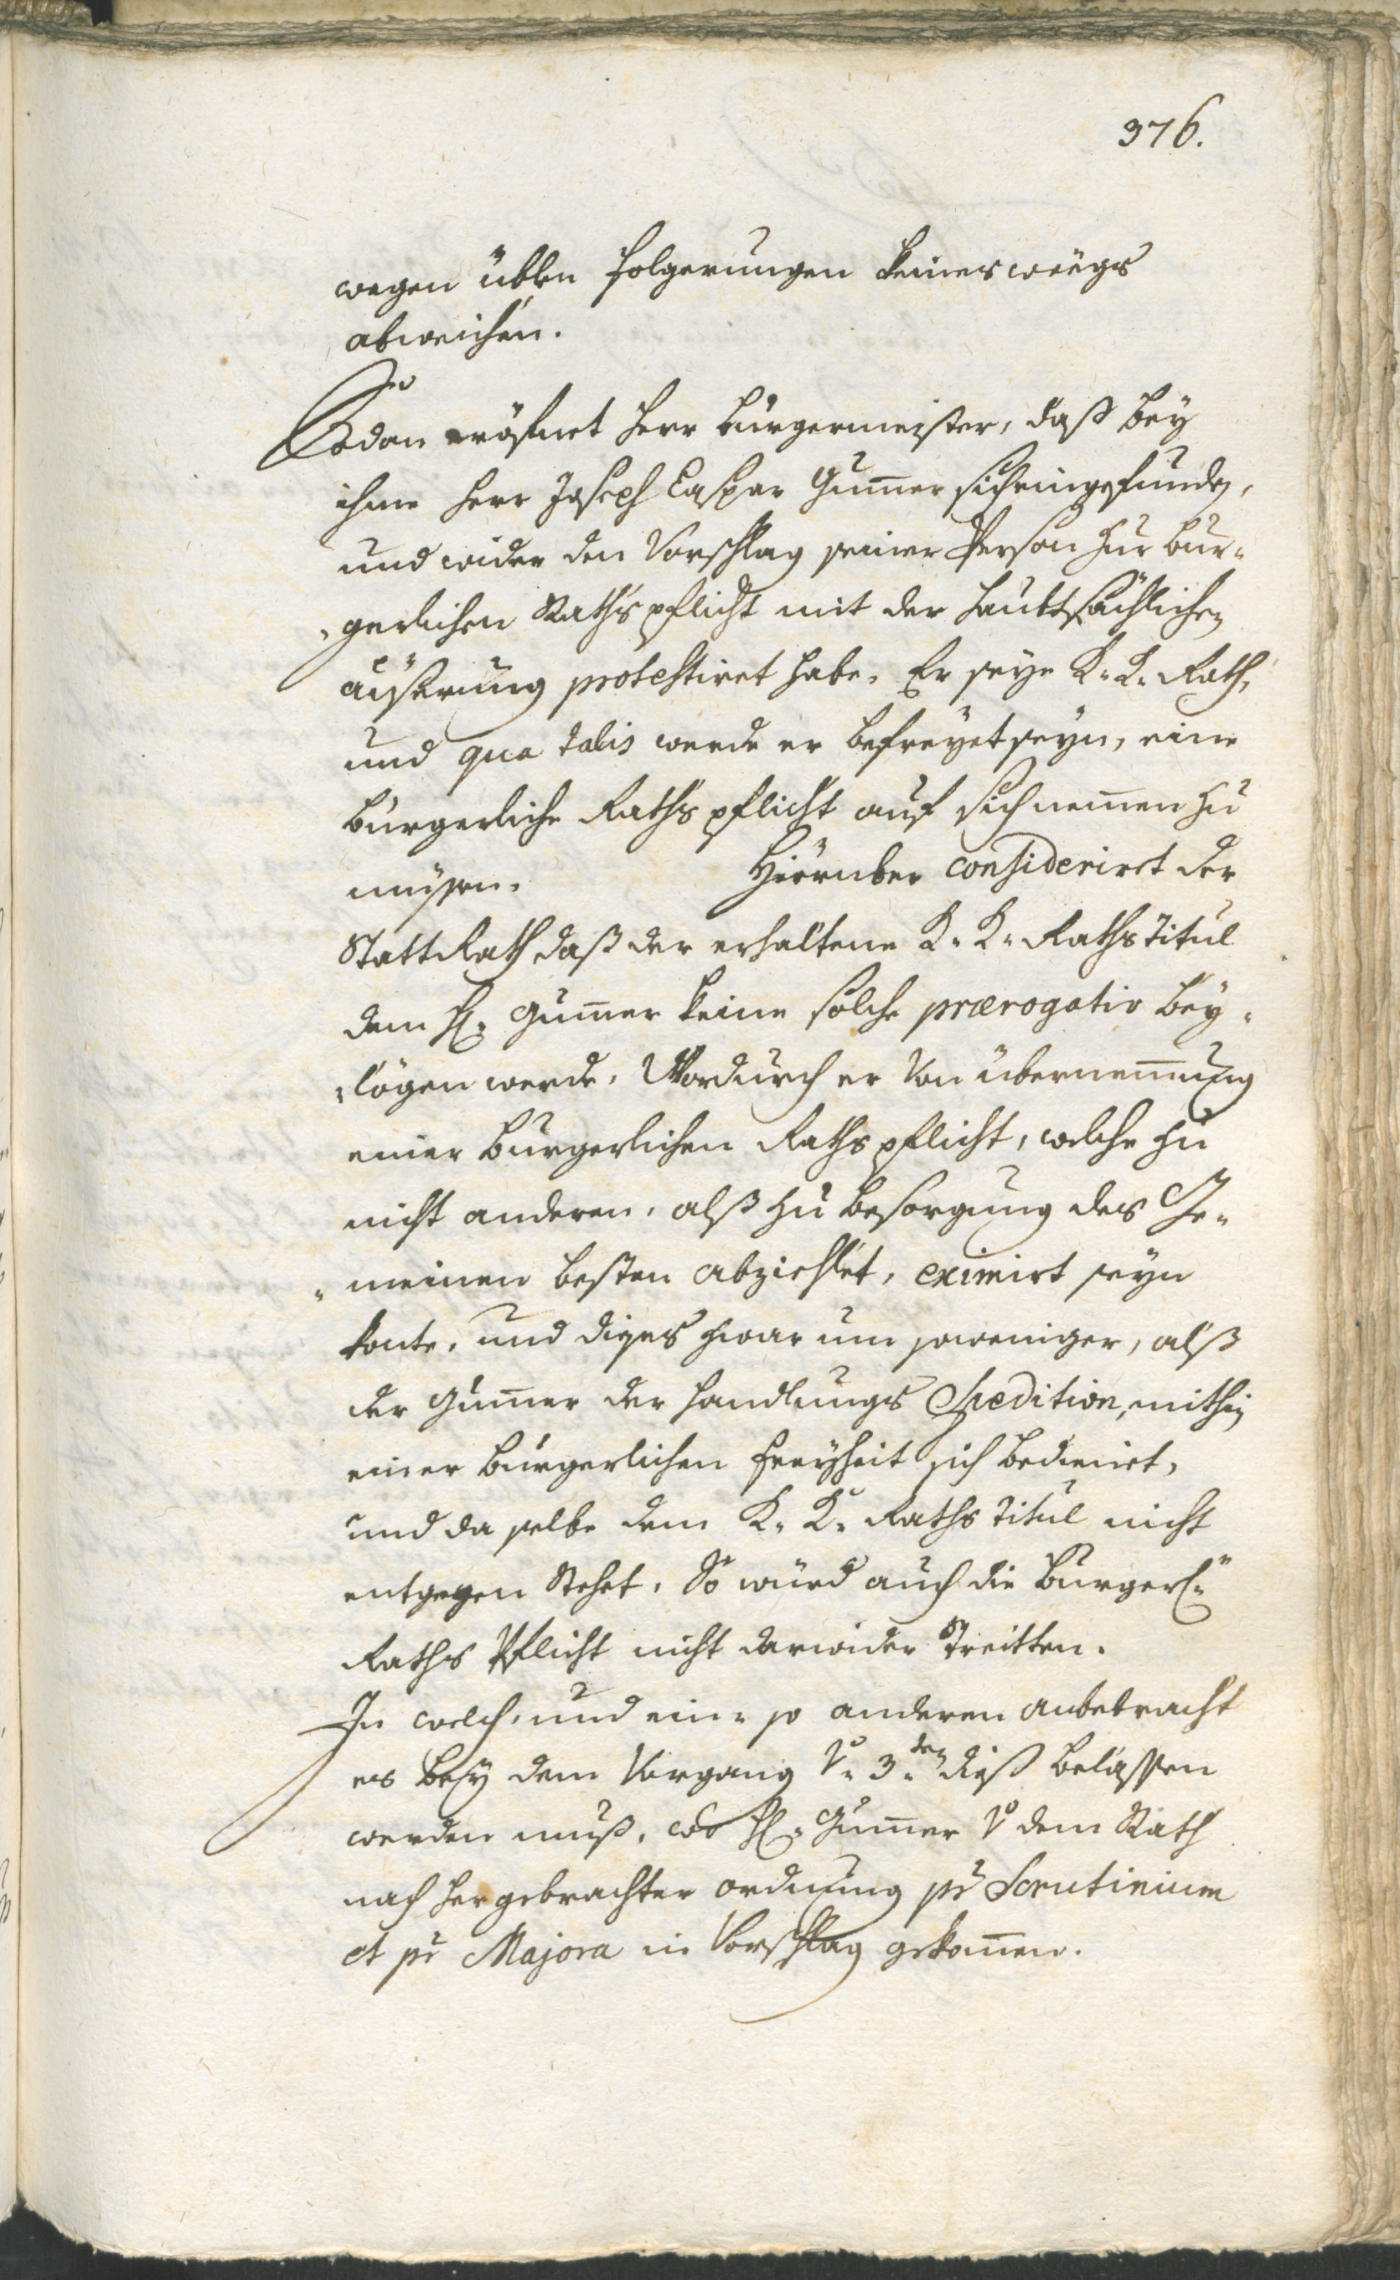 376.
wegen üblen folgerungen keineswëegs
abweichen.
Sodan eröfnet herr burgermeister, daß bey
ihme herr Joseph Caspar Gum̄er sich eingefunden,
und wider den Vorschlag seiner Person zur bur-
gerlichen Rathspflicht mit der haubtsächlichen
äüsserung protestiret habe. Er seye K. K. Rath,
und qua talis werde er befreyet seyn, eine
burgerliche Rathspflicht auf sich nem̄en zu
müssen. Hierüber considerirt der
StattRath daß der erhaltene K. K. Raths Titul
dem H. Gum̄er keine solche prærogativ bey-
lögen werde. Wordurch er von übernem̄ung
einer burgerlichen Rathspflicht, welche zu
nicht anderen, alß zu besorgung des Ge-
meinen besten abziehlet, eximirt seyn
konte, und dises zwar um soweniger, alß
der Gum̄er der handlungs Spedition, mithin
einer burgerlichen Freyheit sich bedienet,
und da selbe dem K. K. Raths Titul nicht
entgegen stehet. So würd auch die burgerl.
Raths Pflicht nicht darwider streitten.
In welch- und ein- so anderen anbetracht
es bey dem Vorgang v. 3.ten diß belassen
werden muß, wo H. Gum̄er v. dem Rath
nach hergebrachter ordnung pr Scrutinium
et pr Majora in Vorschlag gekom̄en.